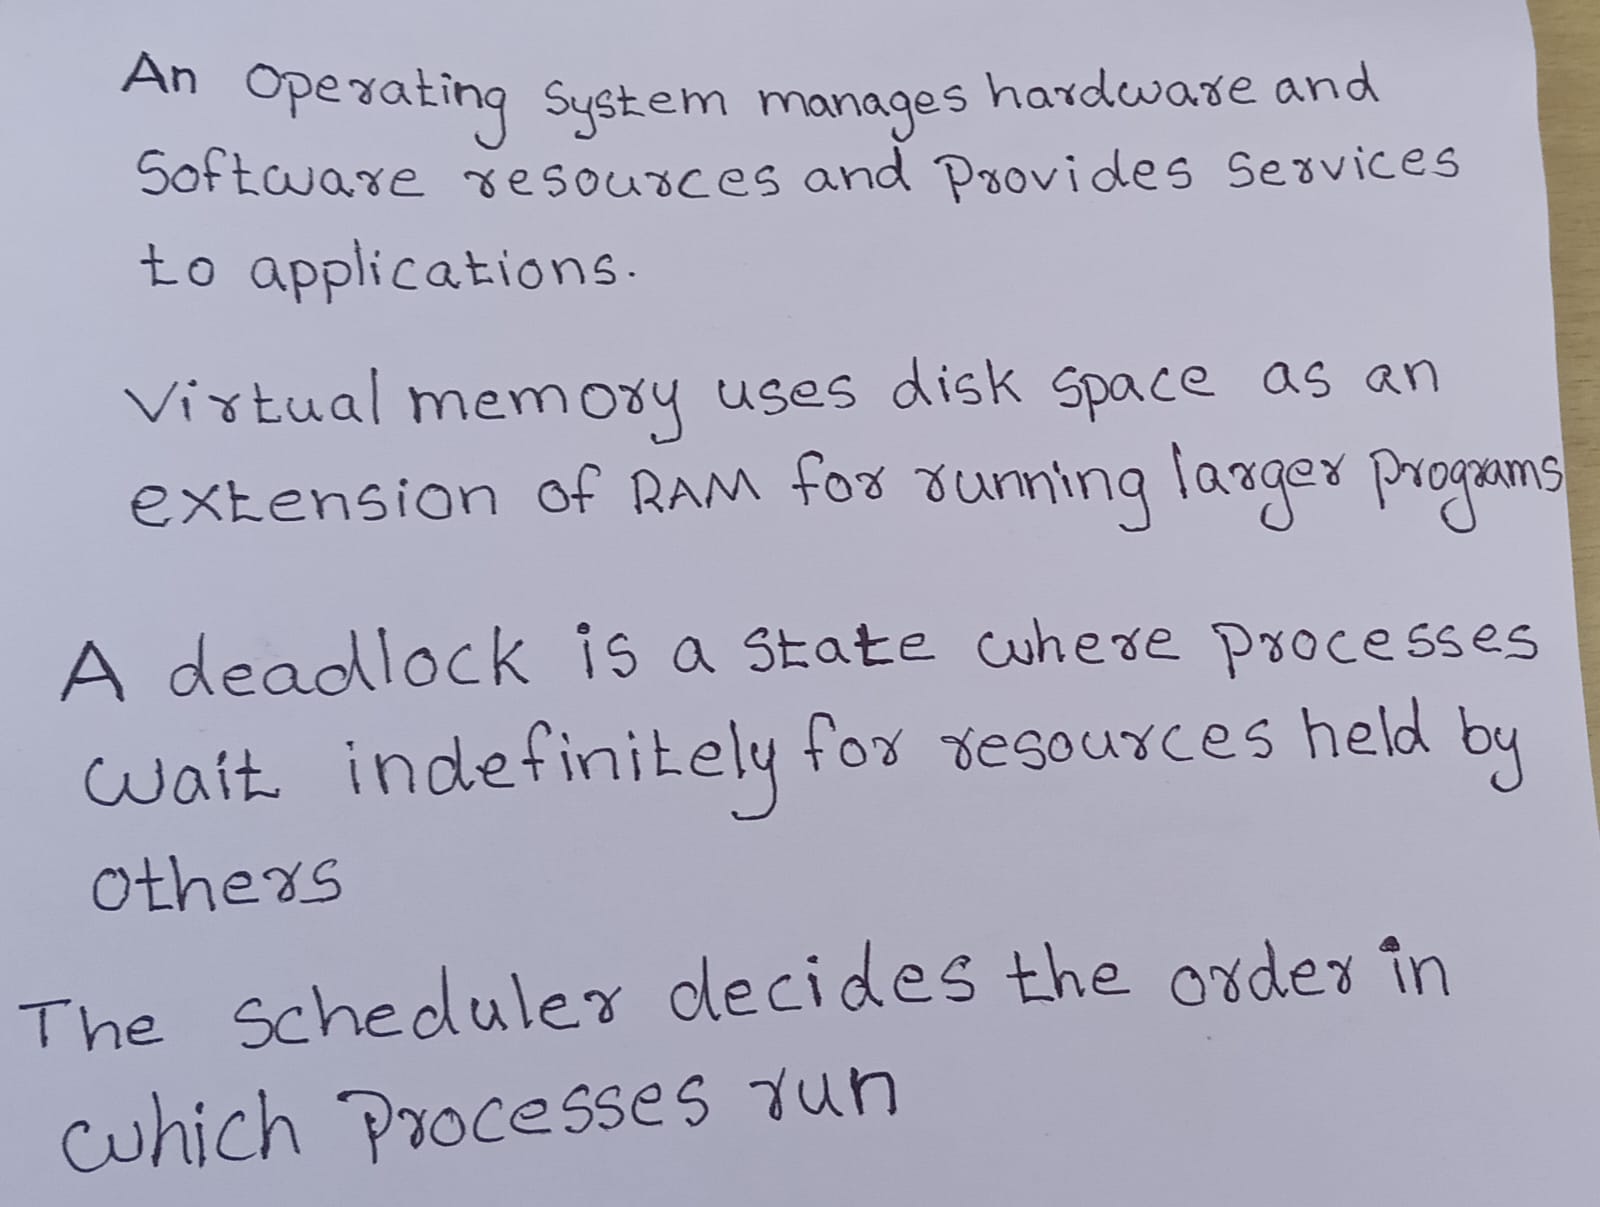 An Operating System manages hardware and
Software resources and Provides Services
to applications.
Virtual memory uses disk space as an
extension of RAM for running larger programs
A deadlock is a state where processes
wait indefinitely for resources held by
others
The scheduler decides the order in
which Processes run